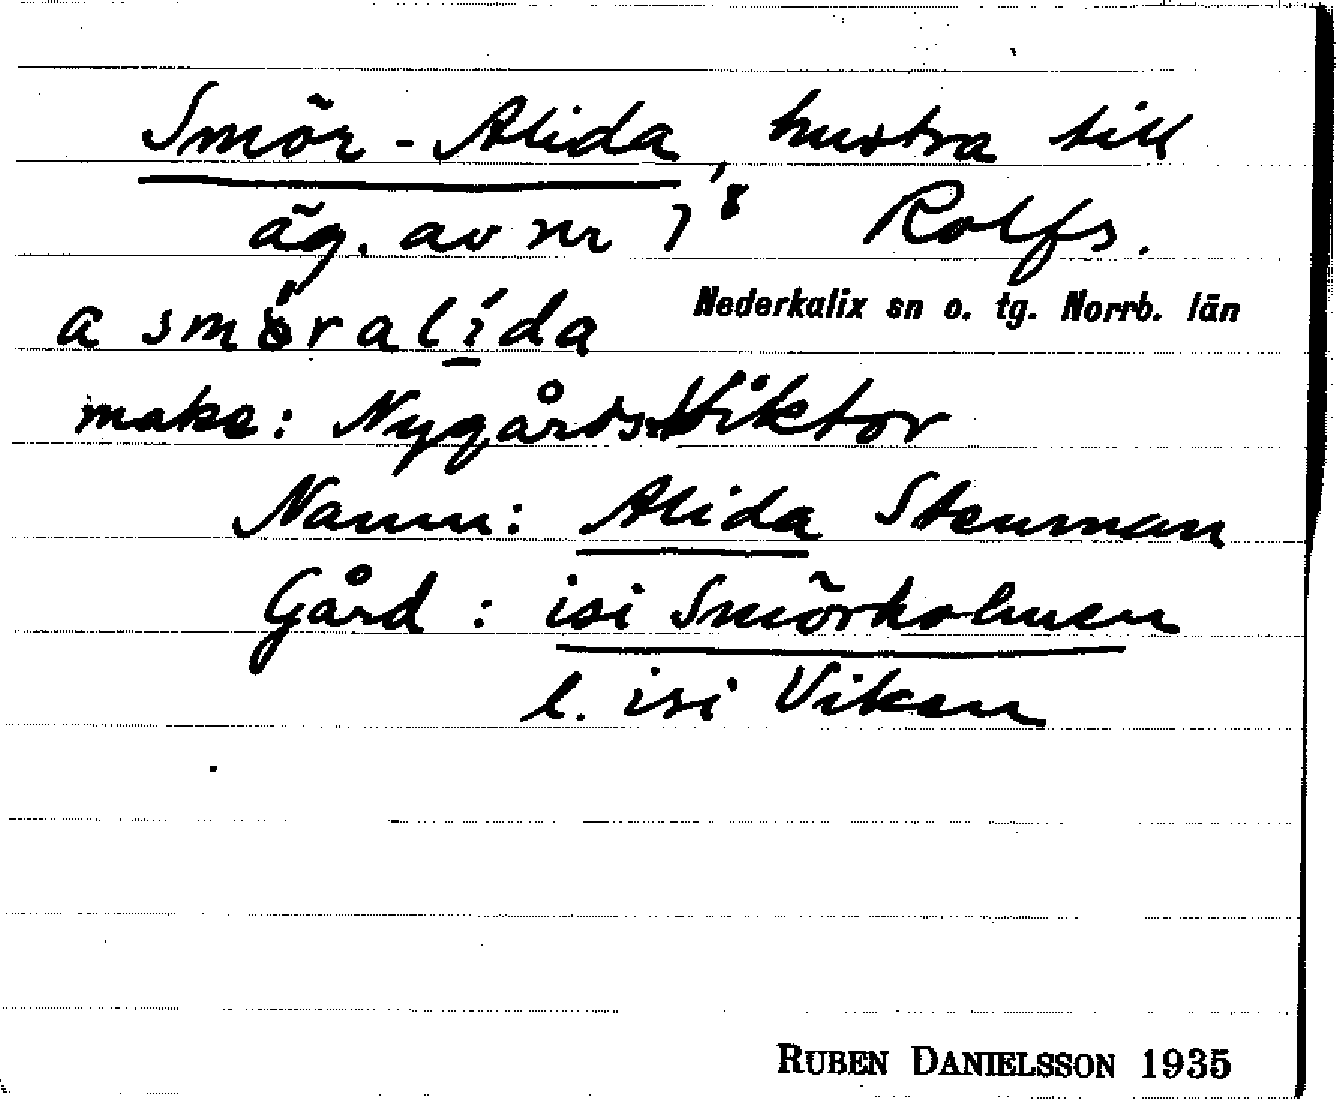 Smör-Alida, hustra till
äg. av nr 7⁸ Rolfs.
Nederkalix sn o. tg. Norrb. län
a smöralida
make: Nygårds-Viktor
Namn: Alida Stenman
Gård: isi Smörholmen
l. isi Viken
RUBEN DANIELSSON 1935